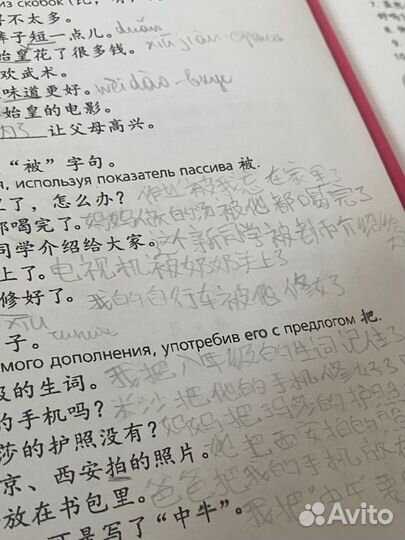 из скобок
子不太多。 duǎn
裤子短一点儿。
始皇花了很多钱。 xiūjiàn
欢武术。
味道更好。 wèidào - вкус
始皇的电影。
为了 让父母高兴。
"被"字句。
, используя показатель пассива 被.
了，怎么办？ 作业被我忘在家里了
都喝完了。妈妈做的汤被他都喝完了
同学介绍给大家。这个新同学被老师介绍给
上了。电视机被奶奶关上了
修好了。我的自行车被他修好了
xiū
子。чинить
мого дополнения, употребив его с предлогом 把.
级的生词。我把八年级的生词记住了
的手机吗？米沙把他的手机修好了吗
莎的护照没有？妈妈把玛莎的护照
京、西安拍的照片。她把西安拍的照
放在书包里。爸爸把我的手机放在
是写了"中牛"。我把"中牛"
Avito